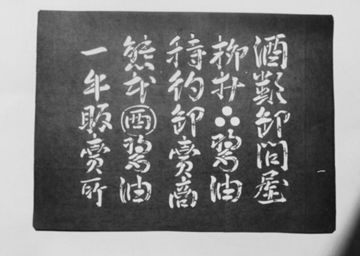 酒類卸問屋
柳井⛬醤油
特約卸賣商
熊本㊃醤油
一手販賣所